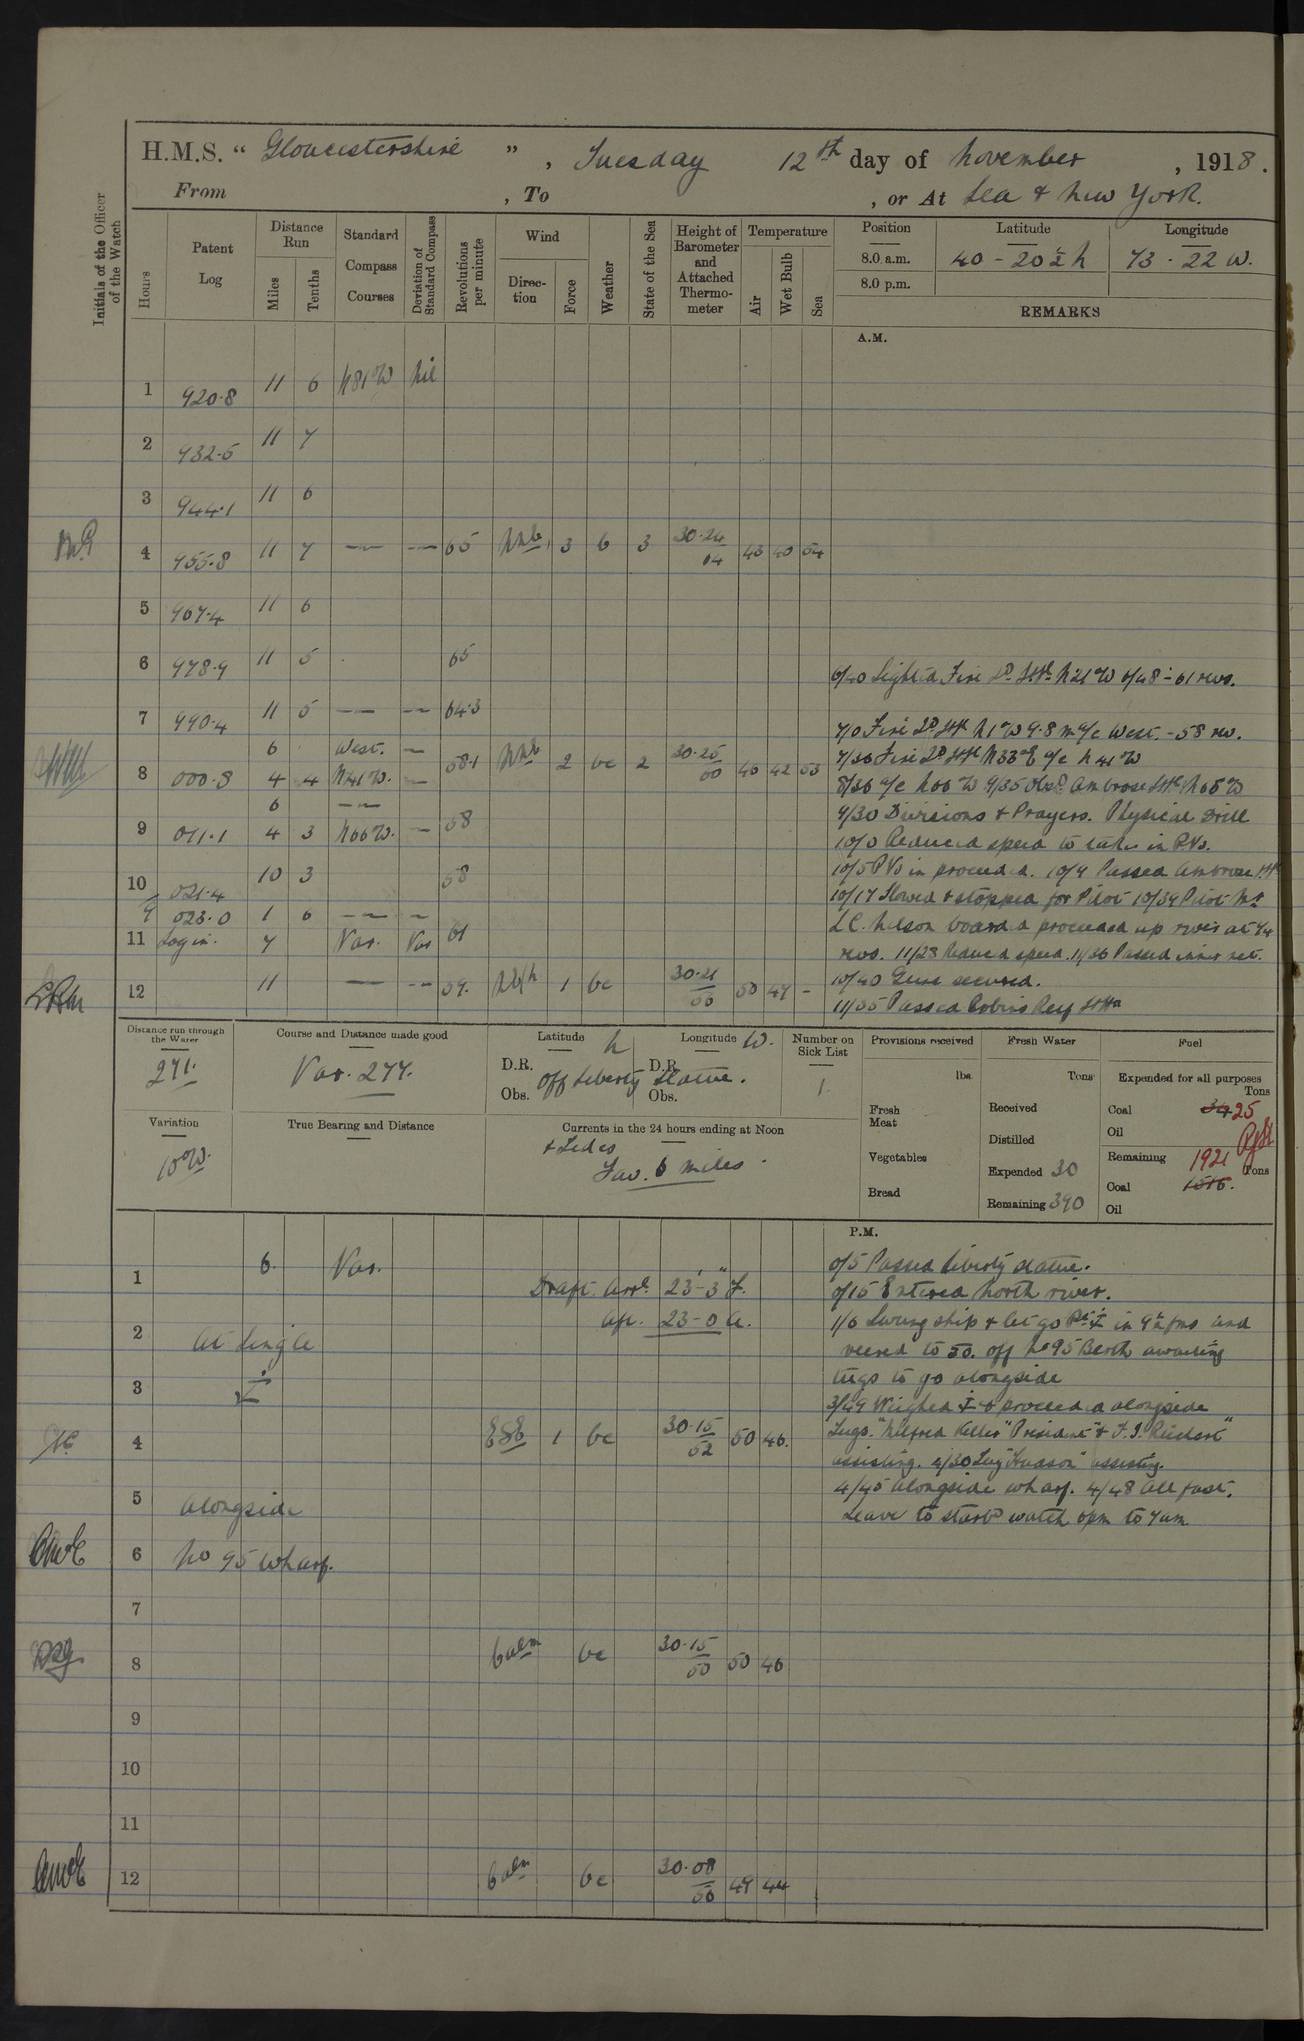 H.M.S. " Gloucestershire ", Tuesday 12th day of November, 1918.
From , To , or At Sea & New York.
Initials of the Officer of the Watch
Hours
Patent Log
Distance Run
Miles
Tenths
Standard Compass Courses
Deviation of Standard Compass
Revolutions per minute
Wind
Direction
Force
Weather
State of the Sea
Height of Barometer and Attached Thermometer
Temperature
Air
Wet Bulb
Sea
Position Latitude Longitude
8.0 a.m. 40 - 20½ N 73 · 22 W.
8.0 p.m.
REMARKS
A.M.
1 920·8 11 6 N81°W Nil
2 932·5 11 7
3 944·1 11 6
4 955·8 11 7 — — 65 3 b 3 30·24 64 43 40 54
5 967·4 11 6
6 978·9 11 5 65
6/40 Sighted Fire Id. Lt. N21°W 6/48 - 61 revs.
7 990·4 11 5 — — 64·3
7/0 Fire Id Lt N1°W 9·8 m a/c West. - 58 rev.
6 West. —
7/36 Fire Id Lt N33°E a/c N41°W
8 000·8 4 4 N41°W. — 58·1 2 bc 2 30·25 60 46 42 53
8/36 a/c N66°W 9/35 Obsd. Ambrose Lt N66°W
6 — —
9/30 Divisions & Prayers. Physical Drill
9 011·1 4 3 N66W. — 58
10/0 Reduced speed to take in P.Vs.
10 021·4 10 3 58
10/5 PVs in proceeded. 10/9 Passed Ambrose Lt
10/17 Slowed & stopped for Pilot 10/39 Pilot Mr
9 023·0 1 6 — —
11 Log in. 7 Var. Var 61
L.C. Nelson board & proceeded up river at 74
revs. 11/23 Reduced speed. 11/36 Passed inner net.
10/40 Guns secured.
12 11 — — 59. 1 bc 30·21 56 50 47 -
11/55 Passed Robins Reef Lt Ho
Distance run through the Water
271.
Course and Distance made good
Var. 277.
Latitude N
Longitude W.
D.R. D.R.
Obs. Off Liberty Statue. Obs.
Number on Sick List
1
Provisions received
lbs.
Fresh Meat
Vegetables
Bread
Fresh Water
Tons
Received
Distilled
Expended 30
Remaining 390
Fuel
Expended for all purposes
Tons
Coal 34 25
Oil
Remaining 1921 Tons
Coal 1515.
Oil
Variation
10°W.
True Bearing and Distance
Currents in the 24 hours ending at Noon
& Tides
Fav. 6 miles.
P.M.
1 6. Var.
0/5 Passed Liberty statue.
Draft. arrl. 23'-3" F.
0/15 Entered North river.
23-0 A.
1/6 Swung ship & let go Pt ⚓ in 9½ fms and
2 At Single
veered to 50. off No 95 Berth awaiting
tugs to go alongside
3 ⚓
3/49 Weighed ⚓ & proceeded alongside
4 ESE 1 bc 30·15 52 50 46.
assisting. 4/30 Tug "Hudson" assisting.
4/45 Alongside wharf. 4/48 All fast.
5 alongside
Leave to starbd watch 6pm to 7am
6 No 95 Wharf.
7
8 Calm bc 30·15 50 50 46
9
10
11
12 Calm bc 30·08 56 49 44